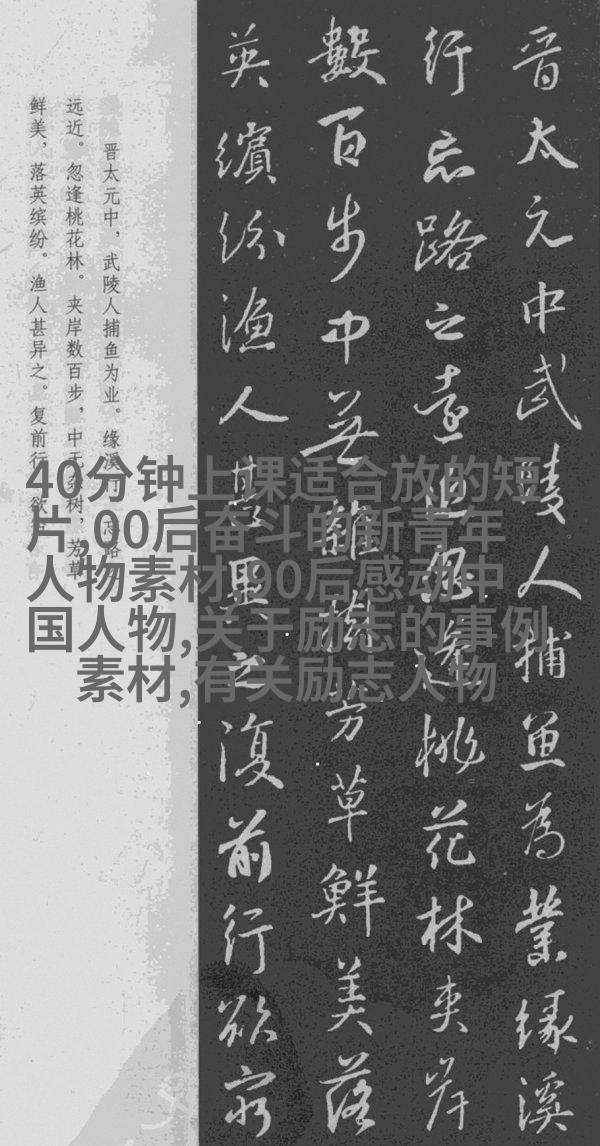 晋太元中武陵人捕魚為業緣溪
行忘路之遠近忽逢桃花林夹岸
數百步中無雜樹芳草鮮美落
英繽紛漁人甚異之復前行欲窮
晋太元中，武陵人捕鱼为业。缘溪行，忘路
远近。忽逢桃花林。夹岸数百步，中无杂树，芳草
鲜美，落英缤纷。渔人甚异之。复前行，欲
40分钟上课适合放的短
片,00后奋斗的新青年
人物素材,90后感动中
国人物,关于励志的事例
素材,有关励志人物